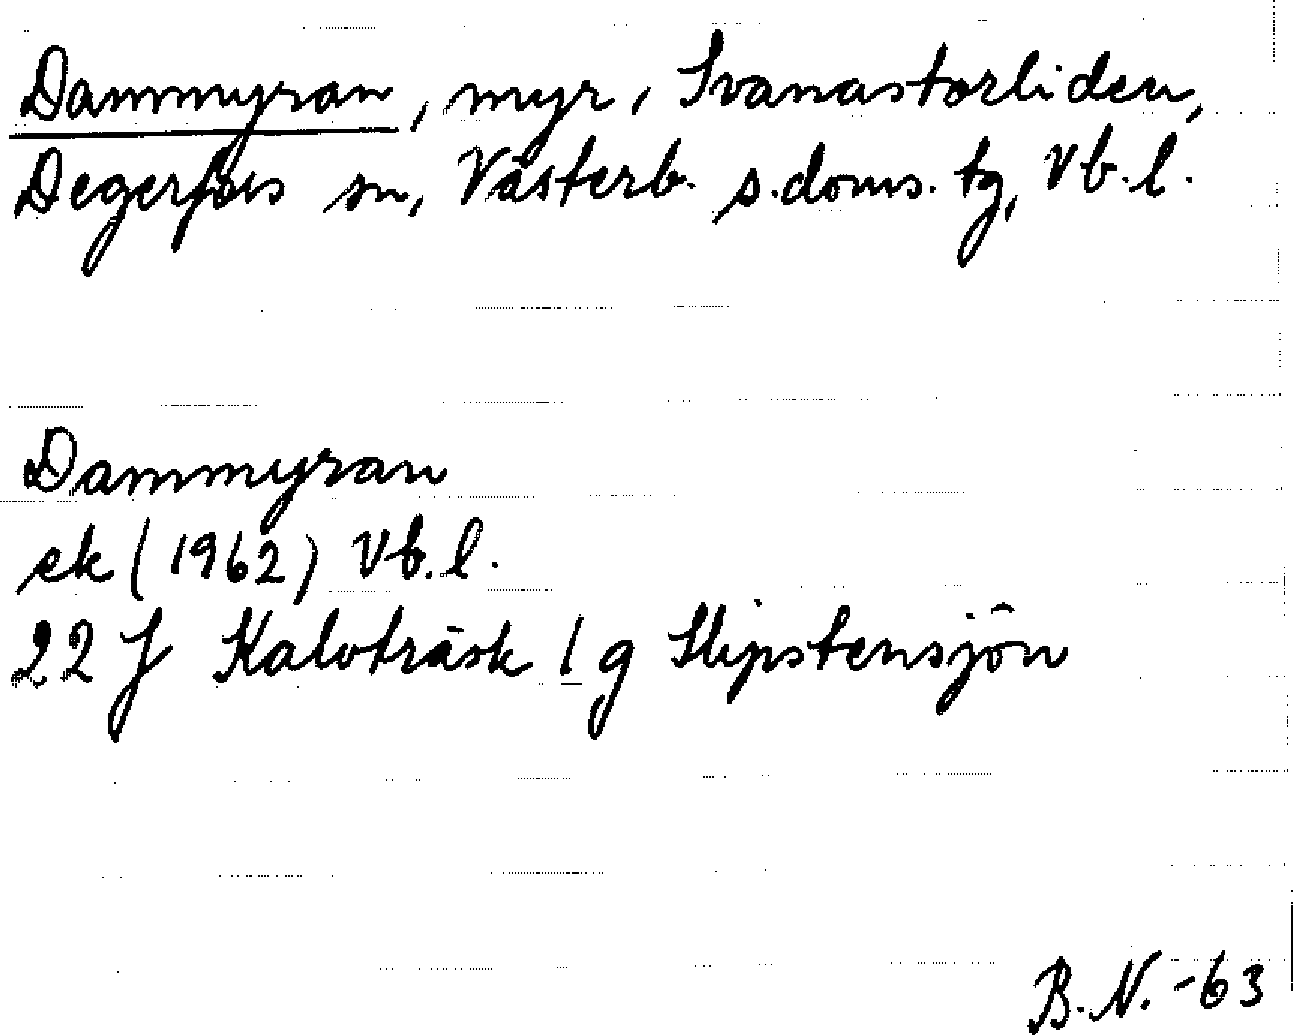 Dammyran, myr, Svanastorliden,
Degerfors sn, Västerb. s.doms. tg, Vb.l.
Dammyran
ek (1962) Vb.l.
22 J Kalvträsk 1 g Slipstensjön
B.N. -63